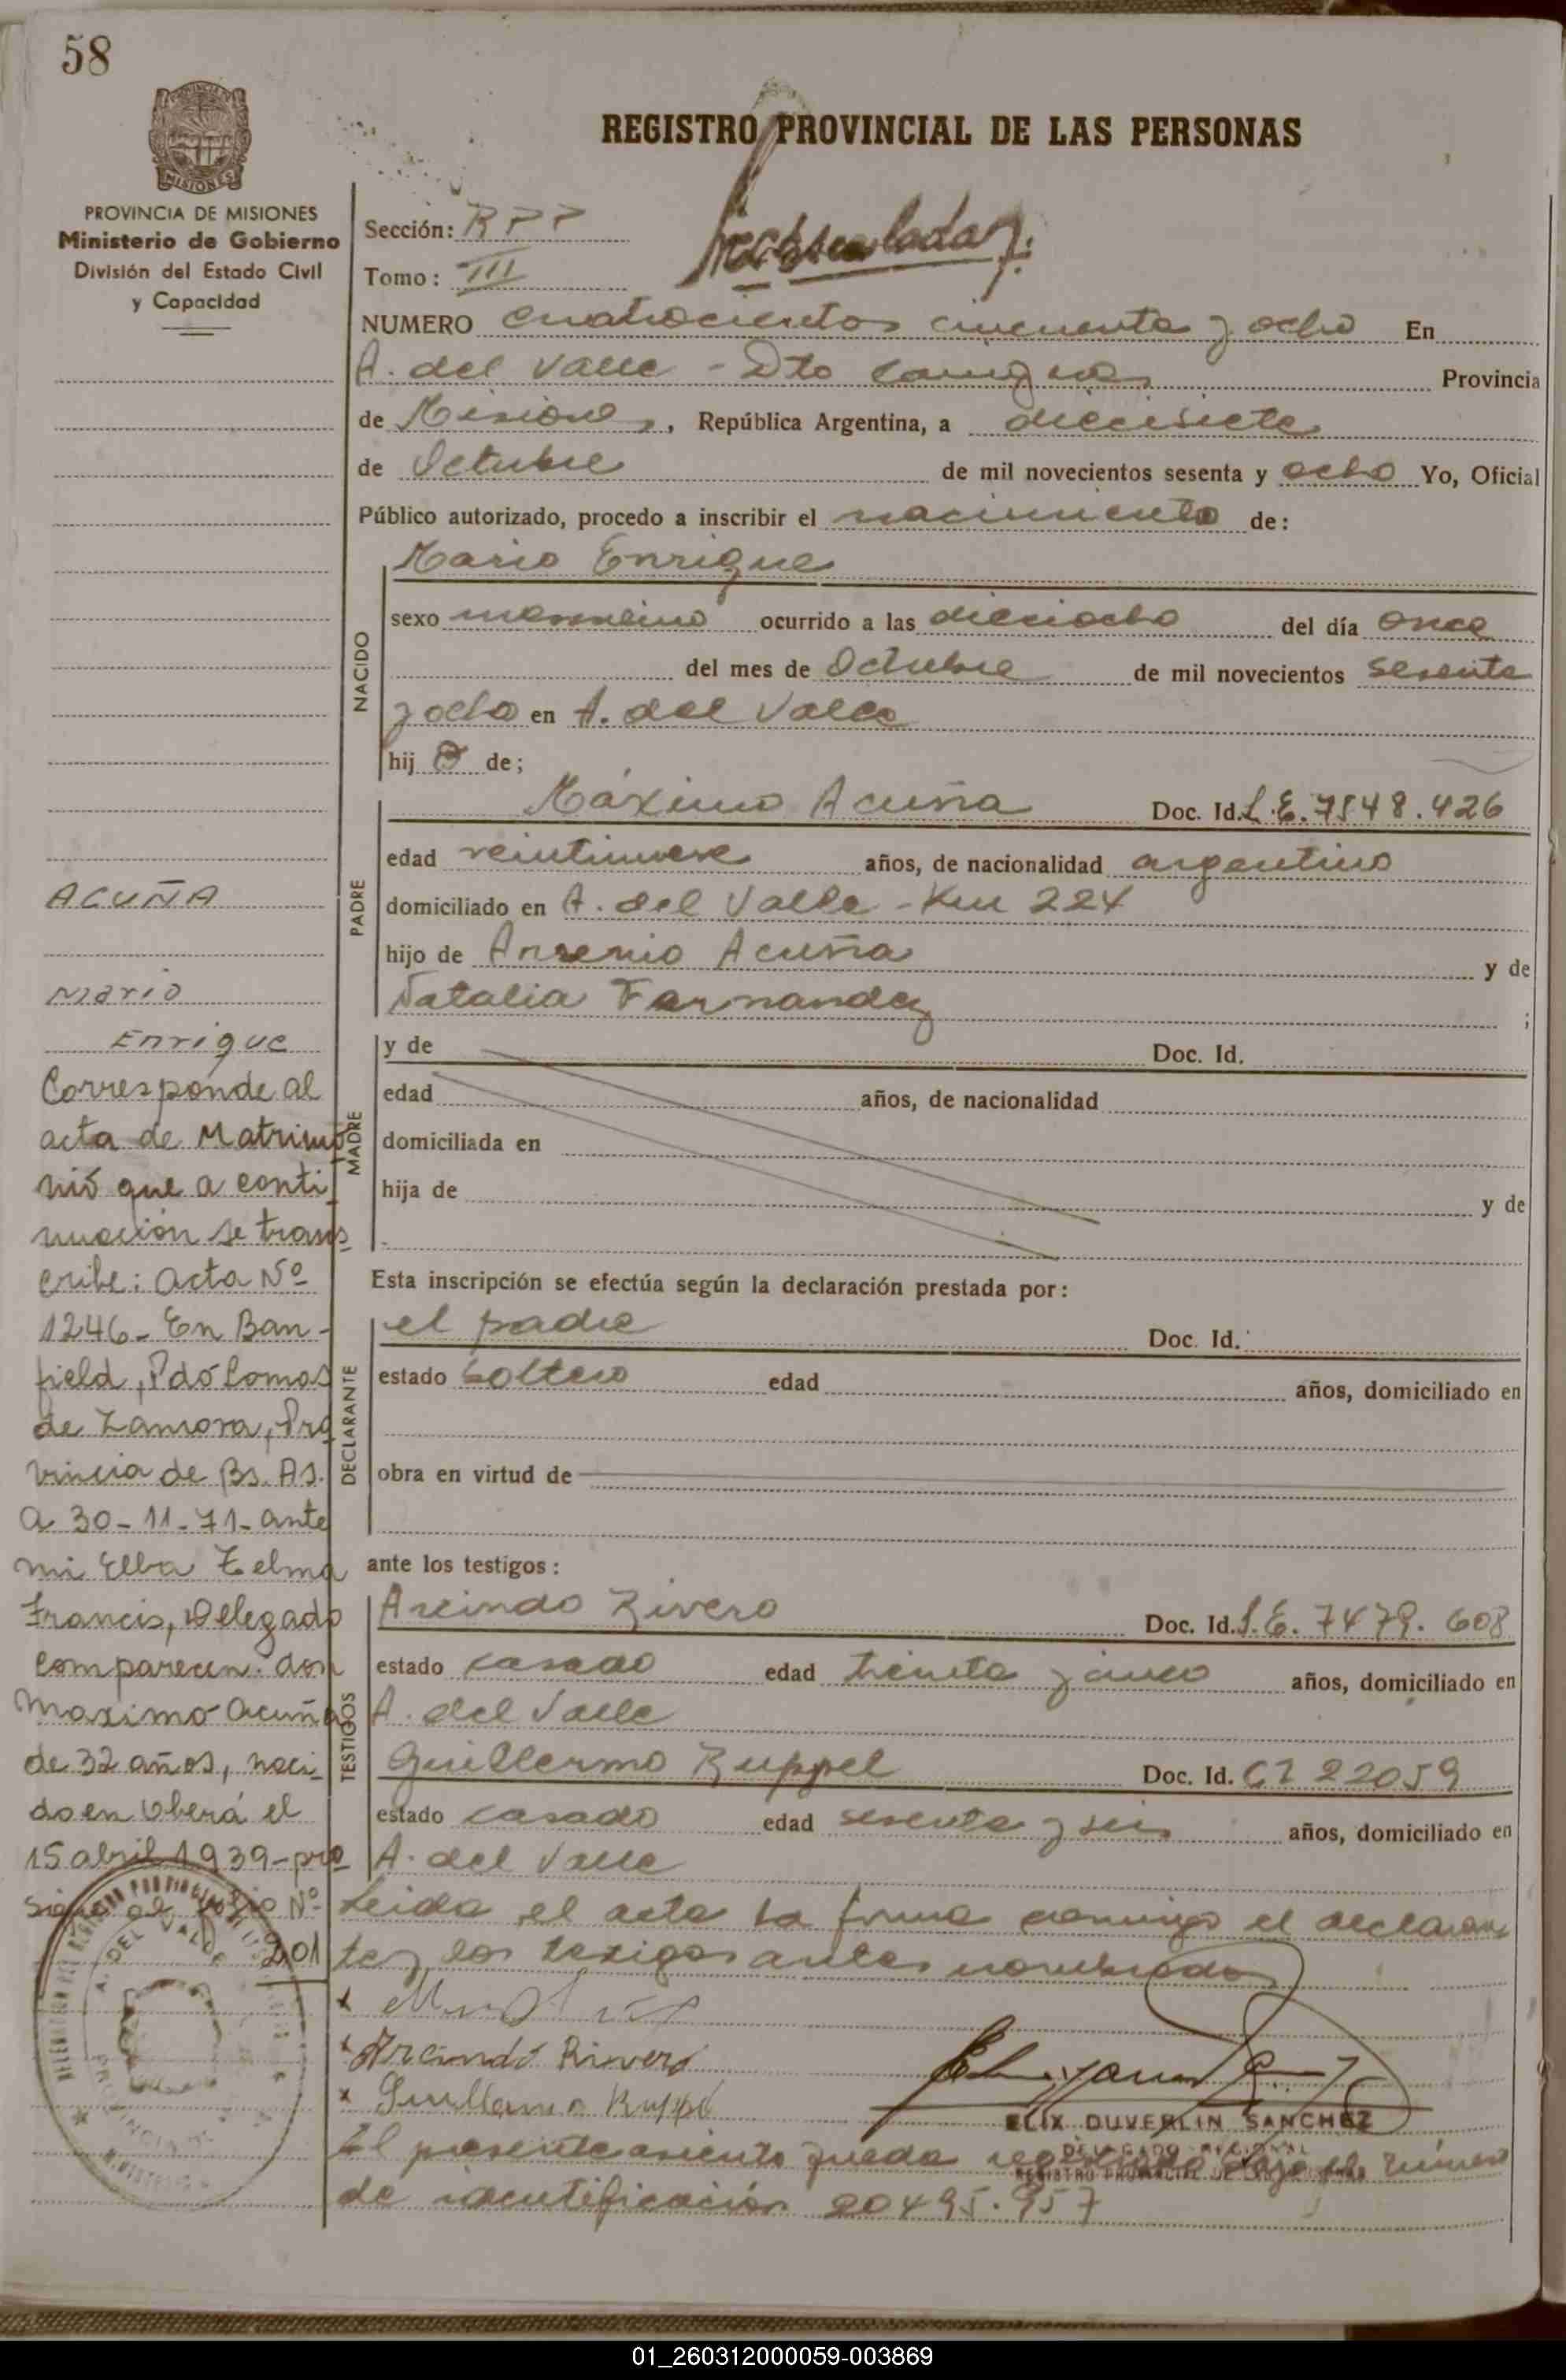 58
PROVINCIA DE MISIONES
Ministerio de Gobierno
División del Estado Civil
y Capacidad
REGISTRO PROVINCIAL DE LAS PERSONAS
Sección: RPP
Tomo: III
NUMERO cuatrocientos cincuenta y ocho En
A. del Valle - Dto Cainguas Provincia
de Misiones, República Argentina, a diecisiete
de Octubre de mil novecientos sesenta y ocho Yo, Oficial
Público autorizado, procedo a inscribir el nacimiento de:
NACIDO
Mario Enrique
sexo masculino ocurrido a las dieciocho del día once
del mes de Octubre de mil novecientos sesenta
y ocho en A. del Valle
hijo de;
PADRE
Máximo Acuña Doc. Id. L.E. 7548.426
edad veintinueve años, de nacionalidad argentino
domiciliado en A. del Valle - Km 224
hijo de Arsenio Acuña y de
Natalia Fernandez ;
MADRE
y de Doc. Id.
edad años, de nacionalidad
domiciliada en
hija de y de
Esta inscripción se efectúa según la declaración prestada por:
DECLARANTE
el padre Doc. Id.
estado soltero edad años, domiciliado en
obra en virtud de
ante los testigos:
TESTIGOS
Arcindo Rivero Doc. Id. L.E. 7479.608
estado casado edad treinta y cinco años, domiciliado en
A. del Valle
Guillermo Ruppel Doc. Id. CI 22059
estado casado edad sesenta y seis años, domiciliado en
A. del Valle
Leida el acta la firma conmigo el declaran
te y los testigos antes nombrados
Arcindo Rivero
Guillermo Ruppel
ELIX DUVERLIN SANCHEZ
DELEGADO REGIONAL
REGISTRO PROVINCIAL DE LAS PERSONAS
El presente asiento queda registrado bajo el número
de identificación 20495.957
ACUÑA
Mario
Enrique
Corresponde al
acta de Matrimo
nio que a conti
nuación se trans
cribe: acta Nº
1246- En Ban-
field, Pdo Lomas
de Zamora, Pro
vincia de Bs. As.
a 30-11-71- ante
mi Elba Zelma
Francis, Delegado
comparecen. don
Maximo Acuña
de 32 años, naci
do en Oberá el
15 abril 1939-pro
sigue al folio Nº
201
01_260312000059-003869